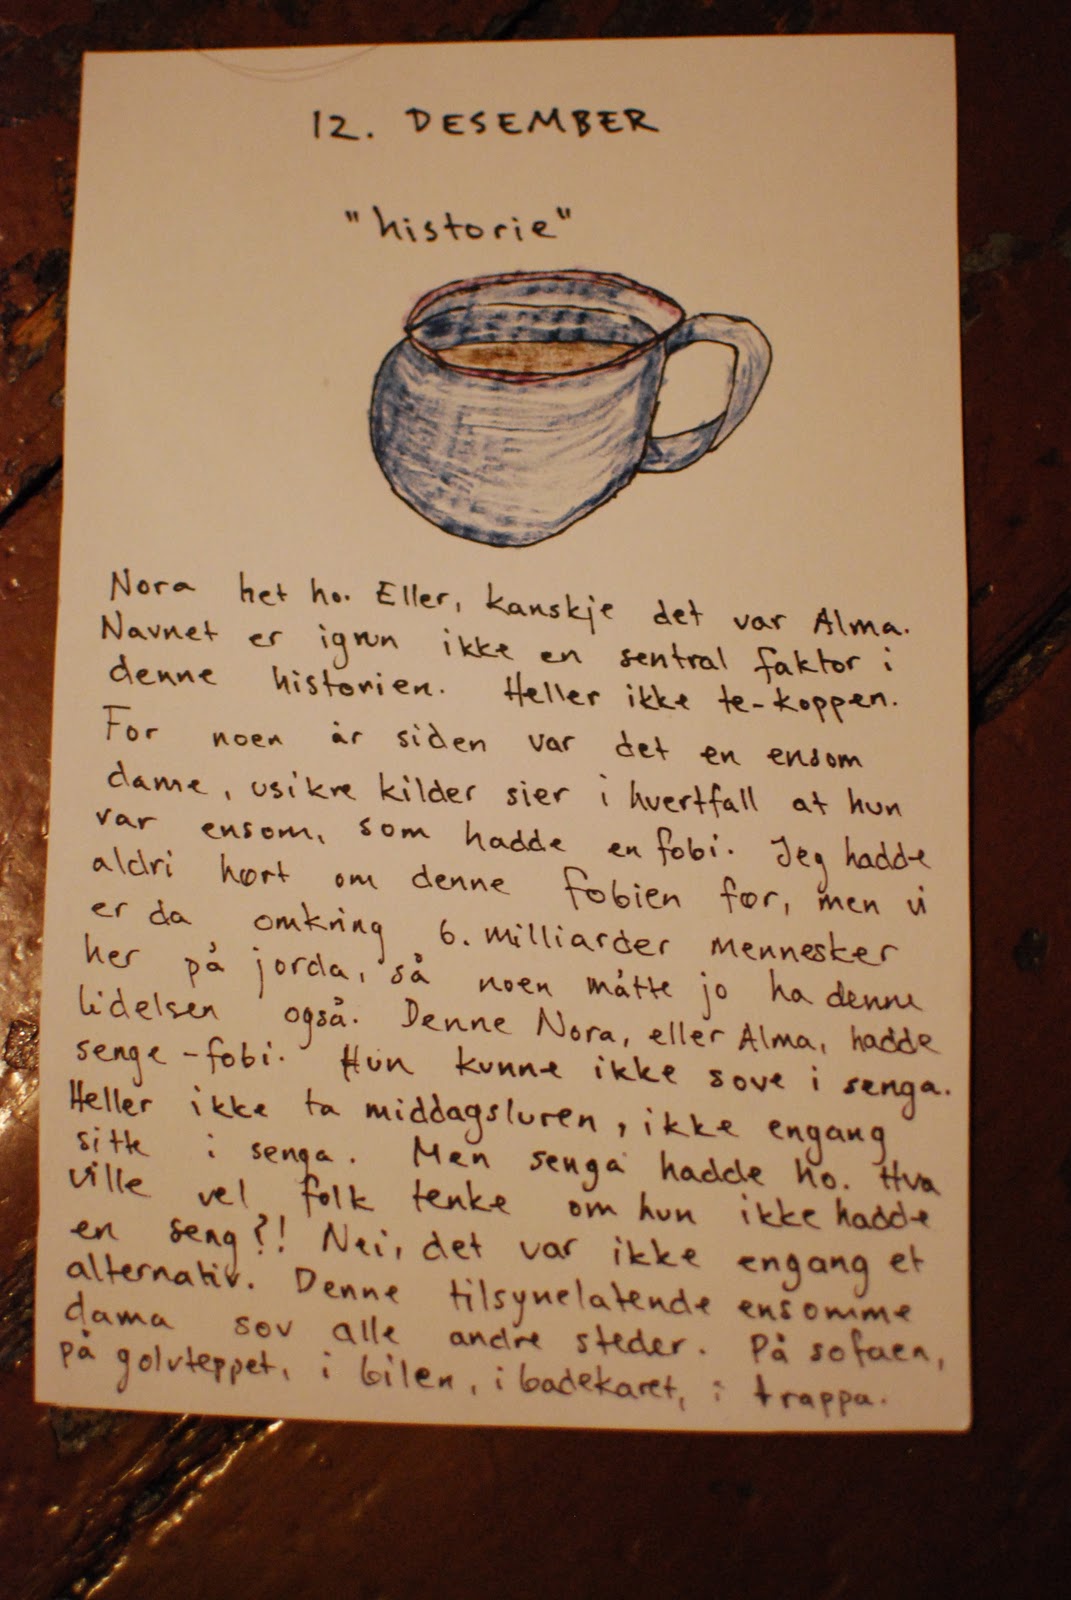 12. DESEMBER
"historie"
Nora het ho. Eller, kanskje det var Alma.
Navnet er igrun ikke en sentral faktor i
denne historien. Heller ikke te-koppen.
For noen år siden var det en ensom
dame, usikre kilder sier i hvertfall at hun
var ensom, som hadde en fobi. Jeg hadde
aldri hørt om denne fobien før, men vi
er da omkring 6. milliarder mennesker
her på jorda, så noen måtte jo ha denne
lidelsen også. Denne Nora, eller Alma, hadde
senge-fobi. Hun kunne ikke sove i senga.
Heller ikke ta middagsluren, ikke engang
sitte i senga. Men senga hadde ho. Hva
ville vel folk tenke om hun ikke hadde
en seng?! Nei, det var ikke engang et
alternativ. Denne tilsynelatende ensomme
dama sov alle andre steder. På sofaen,
på golvteppet, i bilen, i badekaret, i trappa.